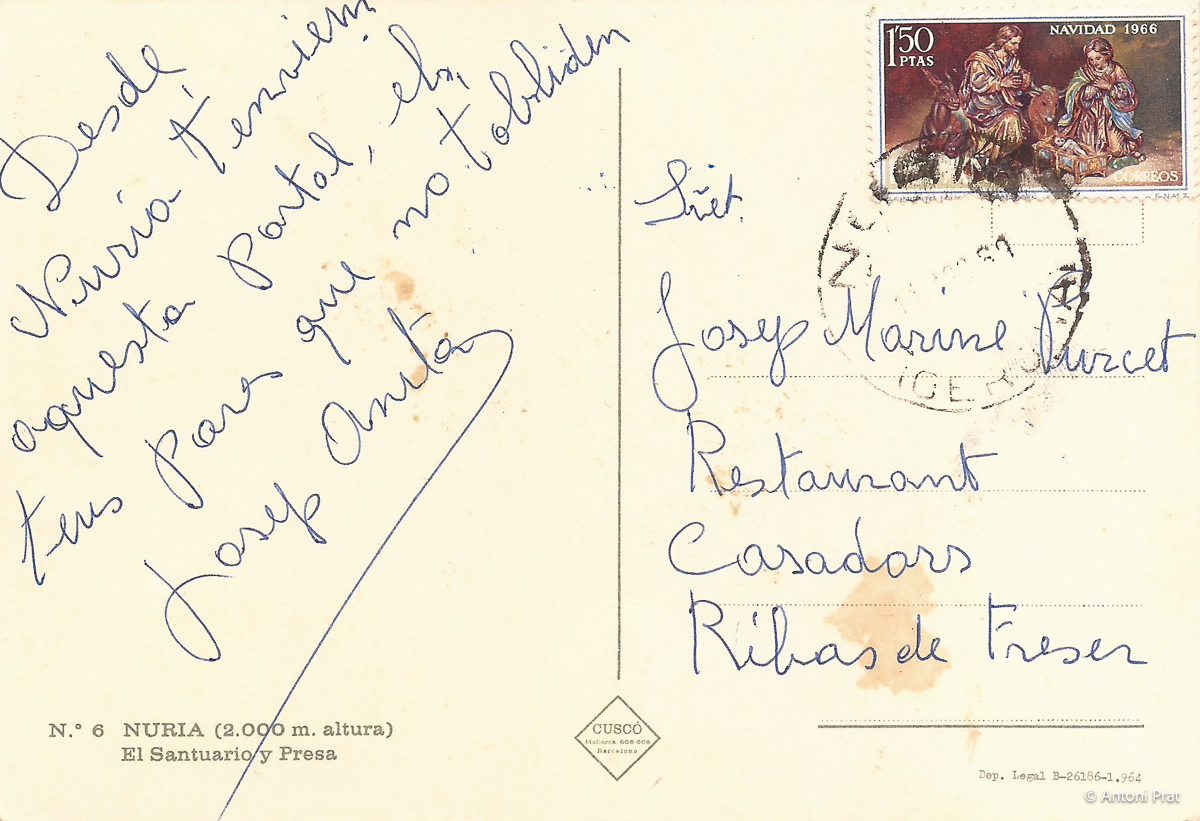 Desde
Nuria t'enviem
aquesta Postal, els
teus Pares que no t'obliden
Josep Anita
N.º 6 NURIA (2.000 m. altura)
El Santuario y Presa
CUSCÓ
Mallorca 606-608
Barcelona
1'50
PTAS
NAVIDAD 1966
CORREOS
F.N.M.T.
Josep Marine Purcet
Restaurant
Casadors
Ribas de Freser
Dep. Legal B-26186-1.964
© Antoni Prat